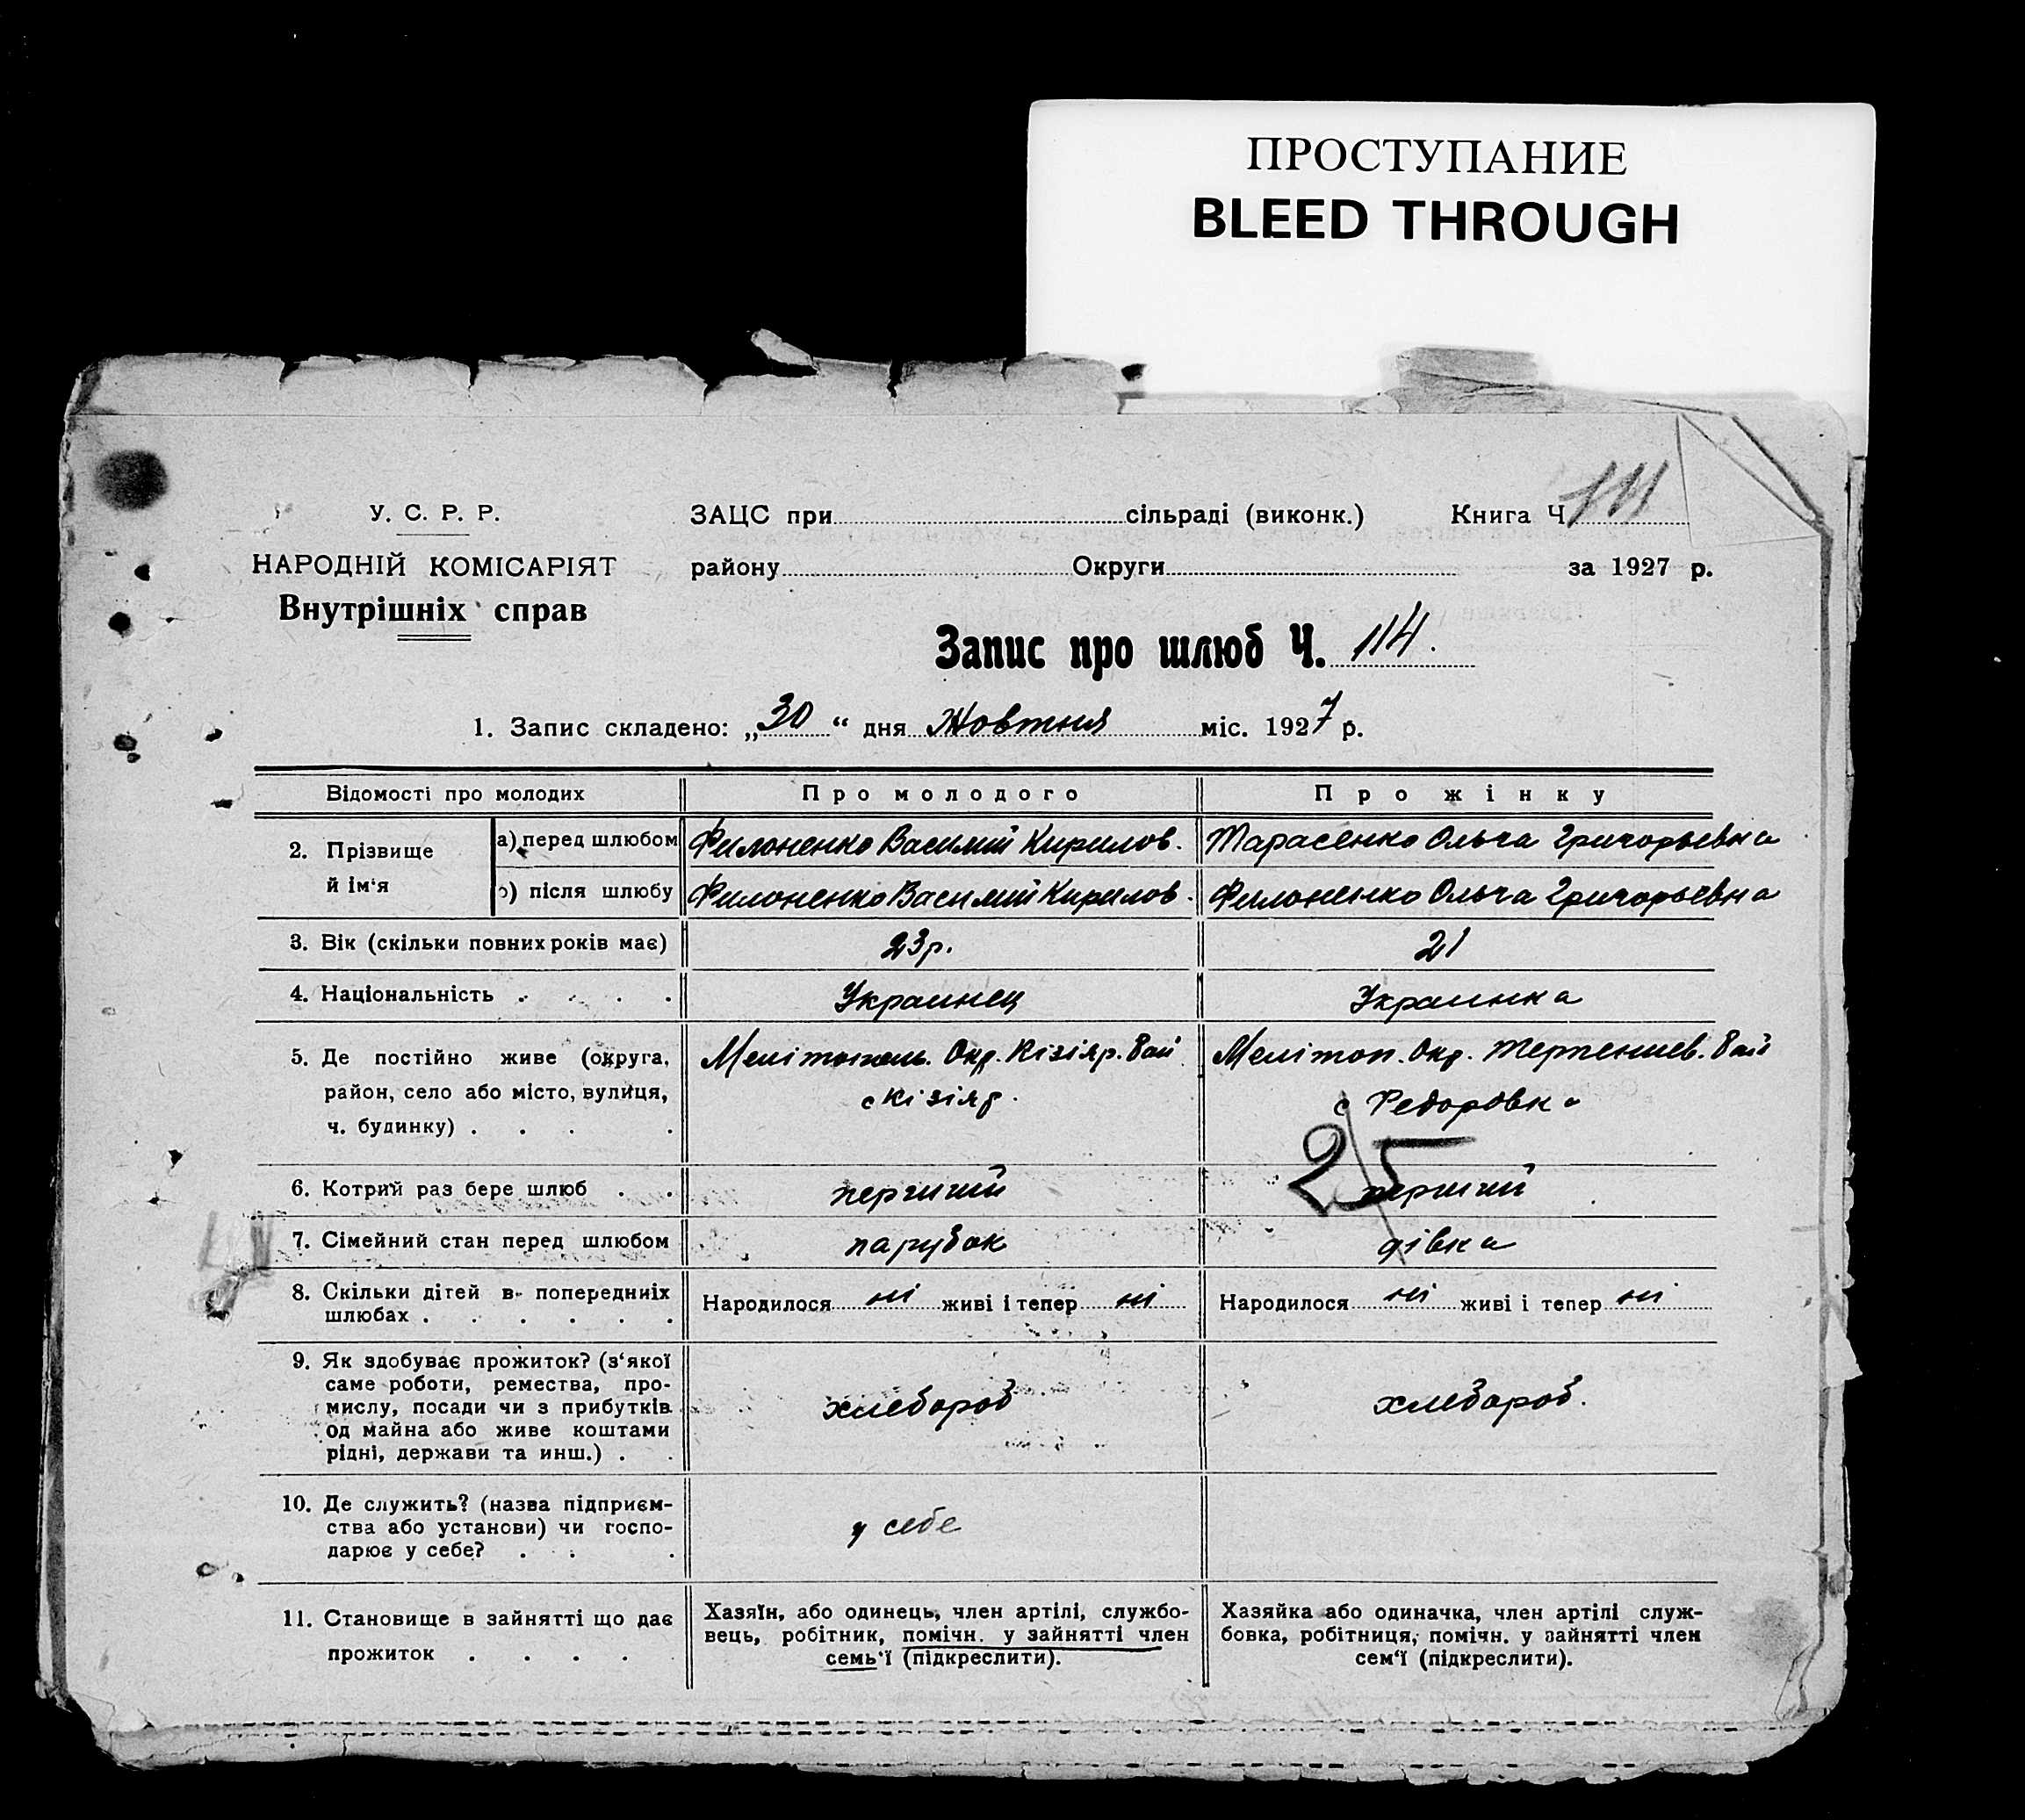 ПРОСТУПАНИЕ
BLEED THROUGH
У. С. Р. Р.
НАРОДНІЙ КОМІСАРІЯТ
Внутрішніх справ
ЗАЦС при сільраді (виконк.) Книга Ч
району Округи за 1927 р.
Запис про шлюб Ч. 114.
1. Запис складено: „30“ дня Жовтня міс. 1927 р.
Відомості про молодих
Про молодого
Про жінку
2. Прізвище й ім‘я
а) перед шлюбом
Филоненко Василий Кирилов.
Тарасенко Ольга Григорьевна
) після шлюбу
Филоненко Василий Кирилов.
Филоненко Ольга Григорьевна
3. Вік (скільки повних років має)
23 р.
21
4. Національність . . . .
Украинец
Украинка
5. Де постійно живе (округа,
район, село або місто, вулиця,
ч. будинку) . . . .
Мелітополь. Окр. Кізіяр. Рай
с Кізіяр.
Мелітоп. Окр. Терпениев. Рай
с Федоровка
25
6. Котрий раз бере шлюб . .
перший
перший
7. Сімейний стан перед шлюбом
парубок
дівка
8. Скільки дітей в попередниіх
шлюбах . . . . . .
Народилося ні живі і тепер ні
Народилося ні живі і тепер ні
9. Як здобуває прожиток? (з‘якої
саме роботи, ремества, про-
мислу, посади чи з прибутків
од майна або живе коштами
рідні, держави та инш.) . .
хлебороб
хлебороб.
10. Де служить? (назва підприєм-
ства або установи) чи госпо-
дарює у себе? . . .
у себе
11. Становище в зайнятті що дає
прожиток . . . .
Хазяїн, або одинець, член артілі, службо-
вець, робітник, помічн. у зайнятті член
семь‘ї (підкреслити).
Хазяйка або одиначка, член артілі служ-
бовка, робітниця, помічн. у зайнятті член
сем‘ї (підкреслити).